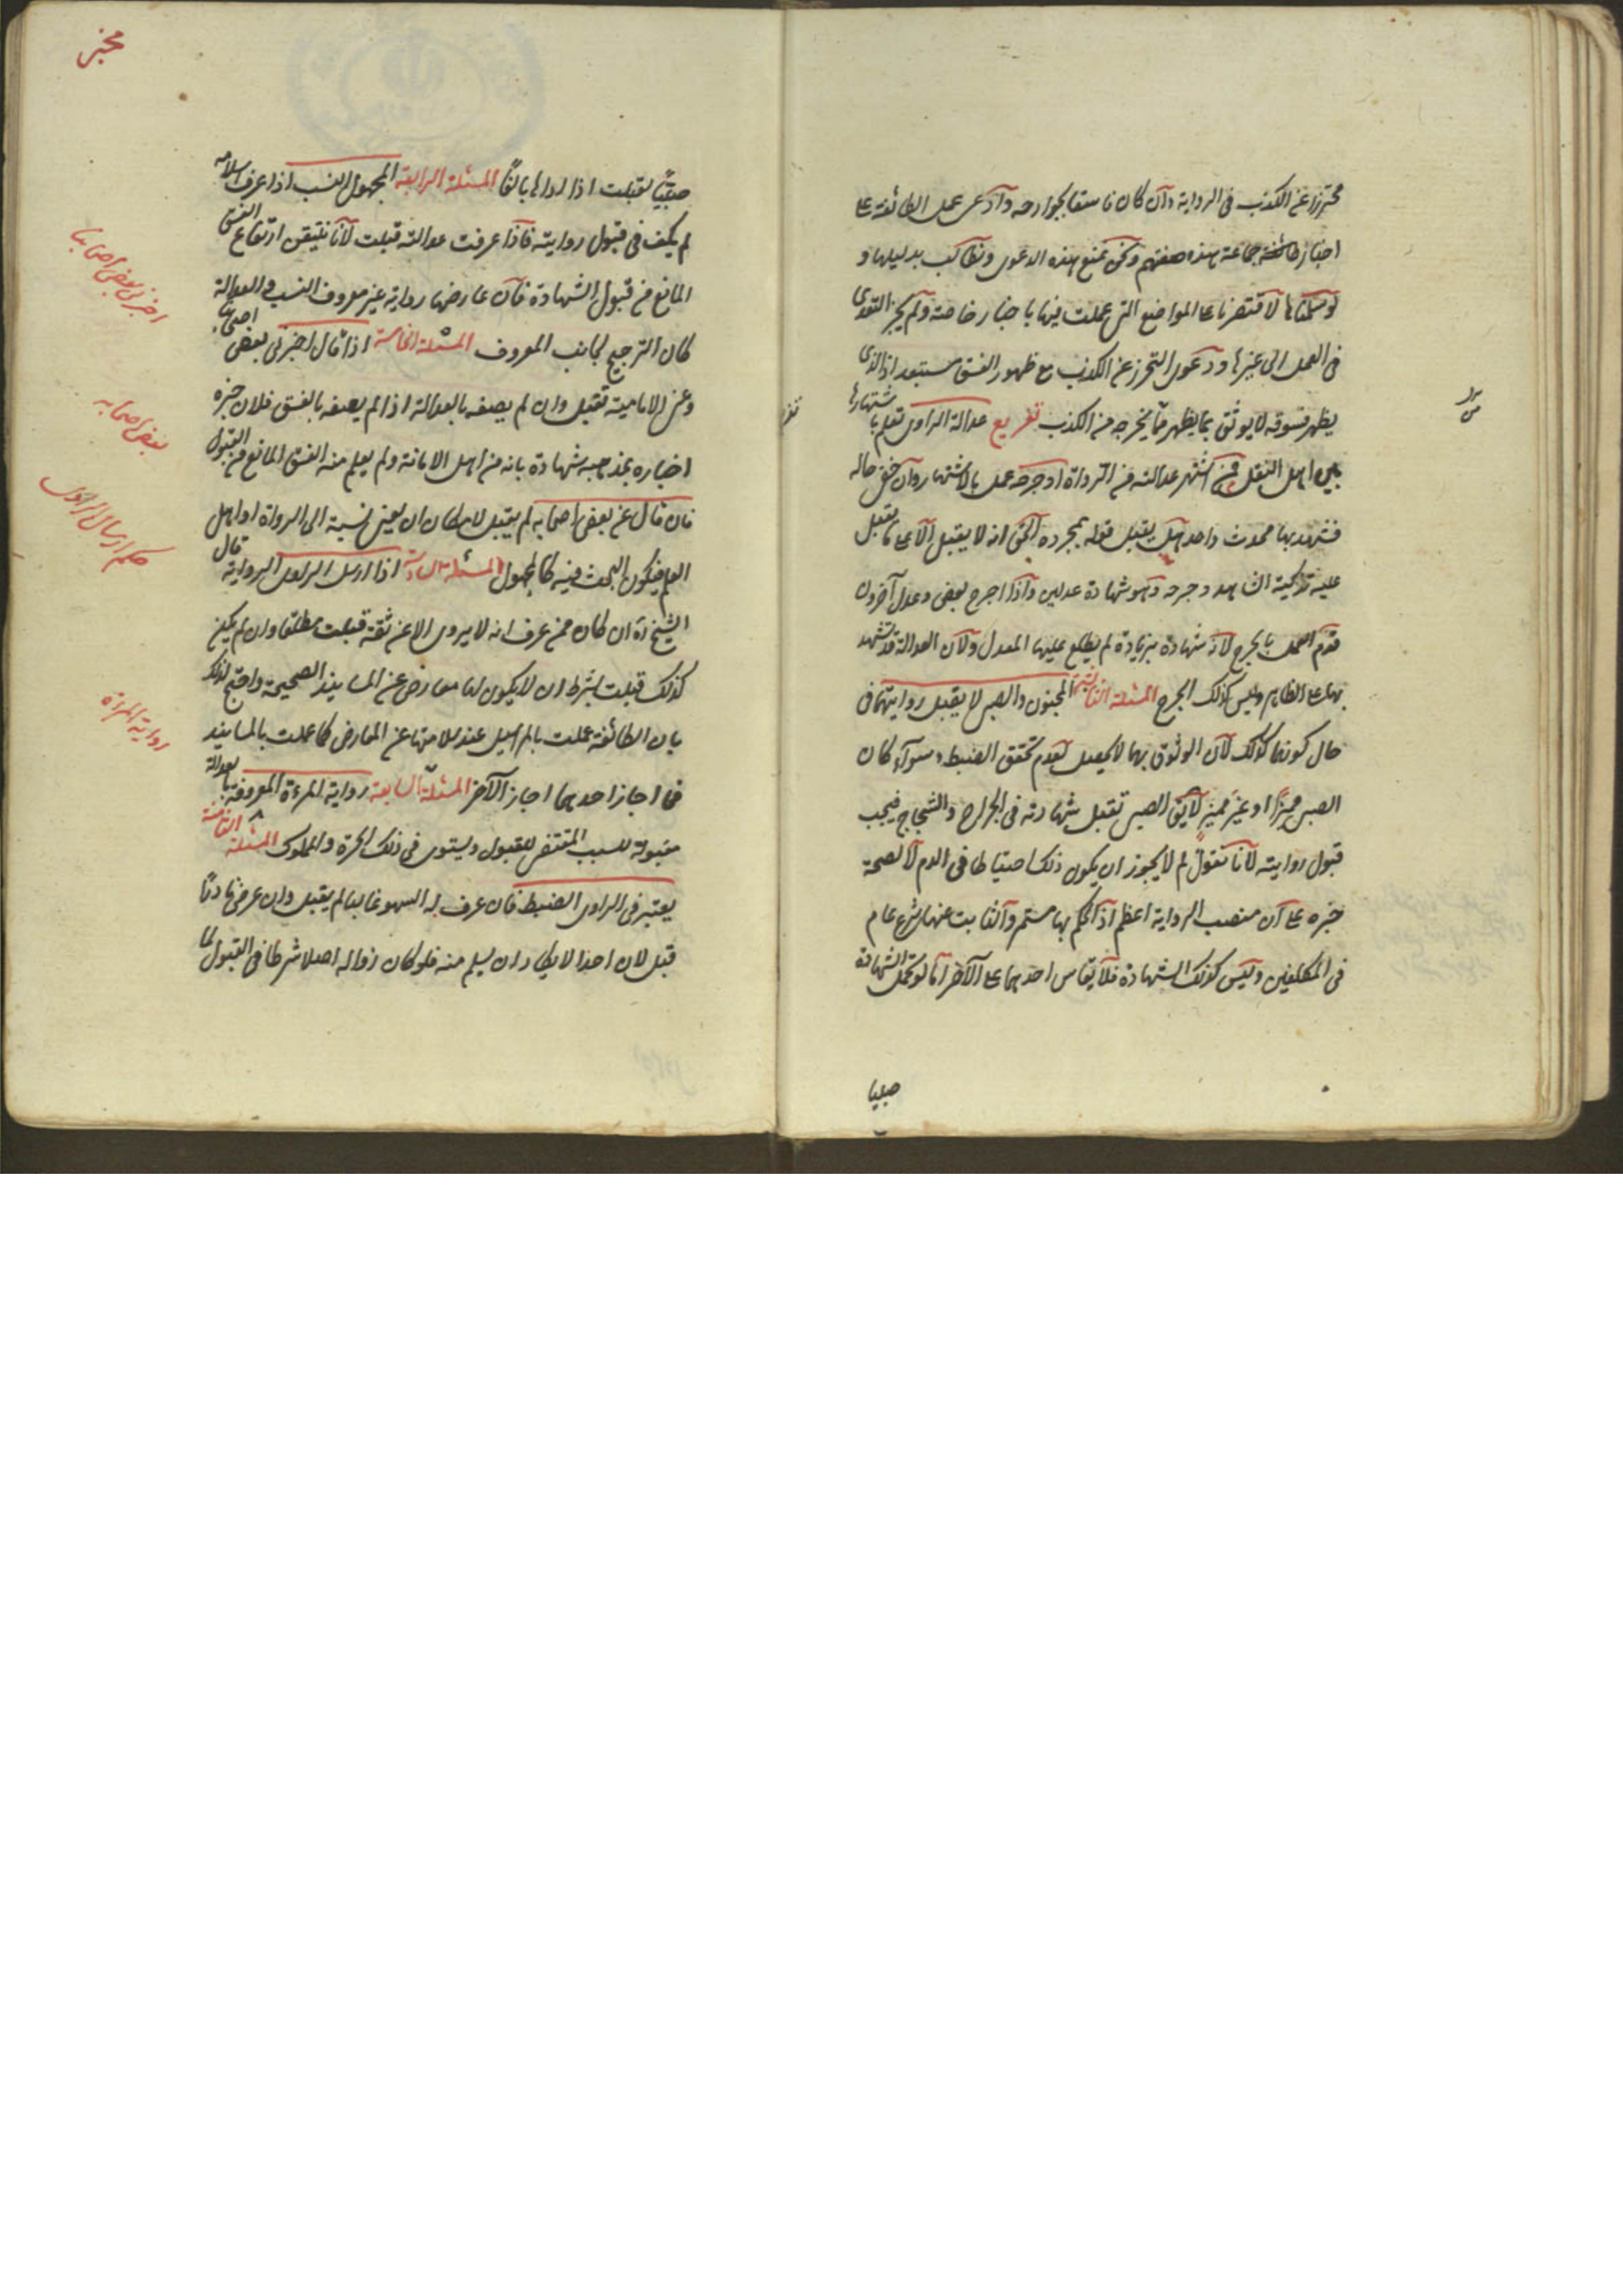 محترزا عن الكذب فى الرواية وان كان فاسقا بجوارحه وادعى عمل الطائفة على
اخبار جماعة هذه صفتهم ونحن نمنع هذه الدعوى ونطالب بدليلها و
لو سلمناها لاقتصرنا على المواضع التى عملت فيها باخبار خاصة ولم يجز التعدى
فى العمل الى غيرها ودعوى التحرز عن الكذب مع ظهور الفسق مستبعد اذ الذى
يظهر فسوقه لا يوثق بما يظهر من تحرجه من الكذب تفريع عدالة الراوى تعلم باشتهارها
بين اهل النقل فمن اشتهر عدالته من الرواة او جرحه عمل بالاشتهار وان خفى حاله
فشهد بها محدث واحد هل يقبل قوله بمجرده الحق انه لا يقبل الا على ما يقبل
عليه تزكية الشاهد وجرحه وهو شهادة عدلين واذا اجرح بعض وعدل آخرون
قدم العمل بالجرح لانه شهادة بزيادة لم يطلع عليها المعدل ولان العدالة قد يشهد
بها على الظاهر وليس كذلك الجرح المسئلة الثالثة المجنون والصبى لا يقبل روايتهما فى
حال كونهما كذلك لان الوثوق بهما لا يحصل لعدم تحقق الضبط وسوآء كان
الصبى مميزا او غير مميز لا يق الصبى تقبل شهادته فى الجراح والشجاج فيجب
قبول روايته لانا نقول لم لا يجوز ان يكون ذلك احتياطا فى الدم لا لصحة
خبره على ان منصب الرواية اعظم اذ الحكم بها مستمر والثابت عنها شرع عام
فى المكلفين وليس كذلك الشهادة فلا يقاس احدهما على الآخر اما لو تحمل الشهادة
صبيا
مخبر
صبيا لقبلت اذا اداها بالغا المسئلة الرابعة المجهول النسب اذا عرف اسلامه
لم يكف فى قبول روايته فاذا عرفت عدالته قبلت لانا نتيقن ارتفاع الفسق
المانع من قبول الشهادة فان عارضها رواية غير معروف النسب والعدالة
كان الترجيح لجانب المعروف المسئلة الخامسة اذا قال اخبرنى بعض اصحابنا
وعنى الامامية تقبل وان لم يصفه بالعدالة اذا لم يصفه بالفسق فلان خبره
اخباره بمذهبه شهادة بانه من اهل الامانة ولم يعلم منه الفسق المانع من القبول
فان قال عن بعض اصحابه لم يقبل لامكان ان يعنى نسبة الى الرواة او اهل
العلم فيكون البحث فيه كالمجهول المسئلة السادسة اذا ارسل الراوى الرواية قال
الشيخ ره ان كان ممن عرف انه لا يروى الا عن ثقة قبلت مطلقا وان لم يكن
كذلك قبلت بشرط ان لا يكون لها معارض عن المسانيد الصحيحة واحتج لذلك
بان الطائفة عملت بالمراسيل عند سلامتها عن المعارض كما عملت بالمسانيد
فما اجاز احدهما اجاز الآخر المسئلة السابعة رواية المرءة المعروفة بالعدالة
مقبولة للسبب المقتضى للقبول ويستوى فى ذلك الحرة والمملوك المسئلة الثامنة
يعتبر فى الراوى الضبط فان عرف له السهو غالبا لم يقبل وان عرض نادرا
قبل لان احدا لا يكاد ان يسلم منه فلو كان زواله اصلا شرطا فى القبول لما
اخبرنى بعض اصحابنا
بعض اصحابه
حكم ارسال الراوى
رواية المرءة